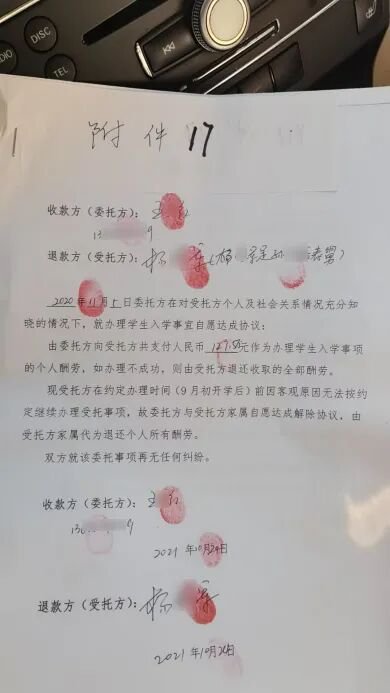 DISC
TEL
附件17
收款方（委托方）：王红
13 9
退款方（受托方）：杨 军（杨 是孙 诸舅）
2020年11月5日委托方在对受托方个人及社会关系情况充分知
晓的情况下，就办理学生入学事宜自愿达成协议：
由委托方向受托方共支付人民币 元作为办理学生入学事项
的个人酬劳，如办理不成功，则由受托方退还收取的全部酬劳。
现受托方在约定办理时间（9月初开学后）前因客观原因无法按约
定继续办理受托事项，故委托方与受托方家属自愿达成解除协议，由
受托方家属代为退还个人所有酬劳。
双方就该委托事项再无任何纠纷。
收款方（委托方）：王红
136 9
2021年10月24日
退款方（受托方）：杨 军
2021年10月24日